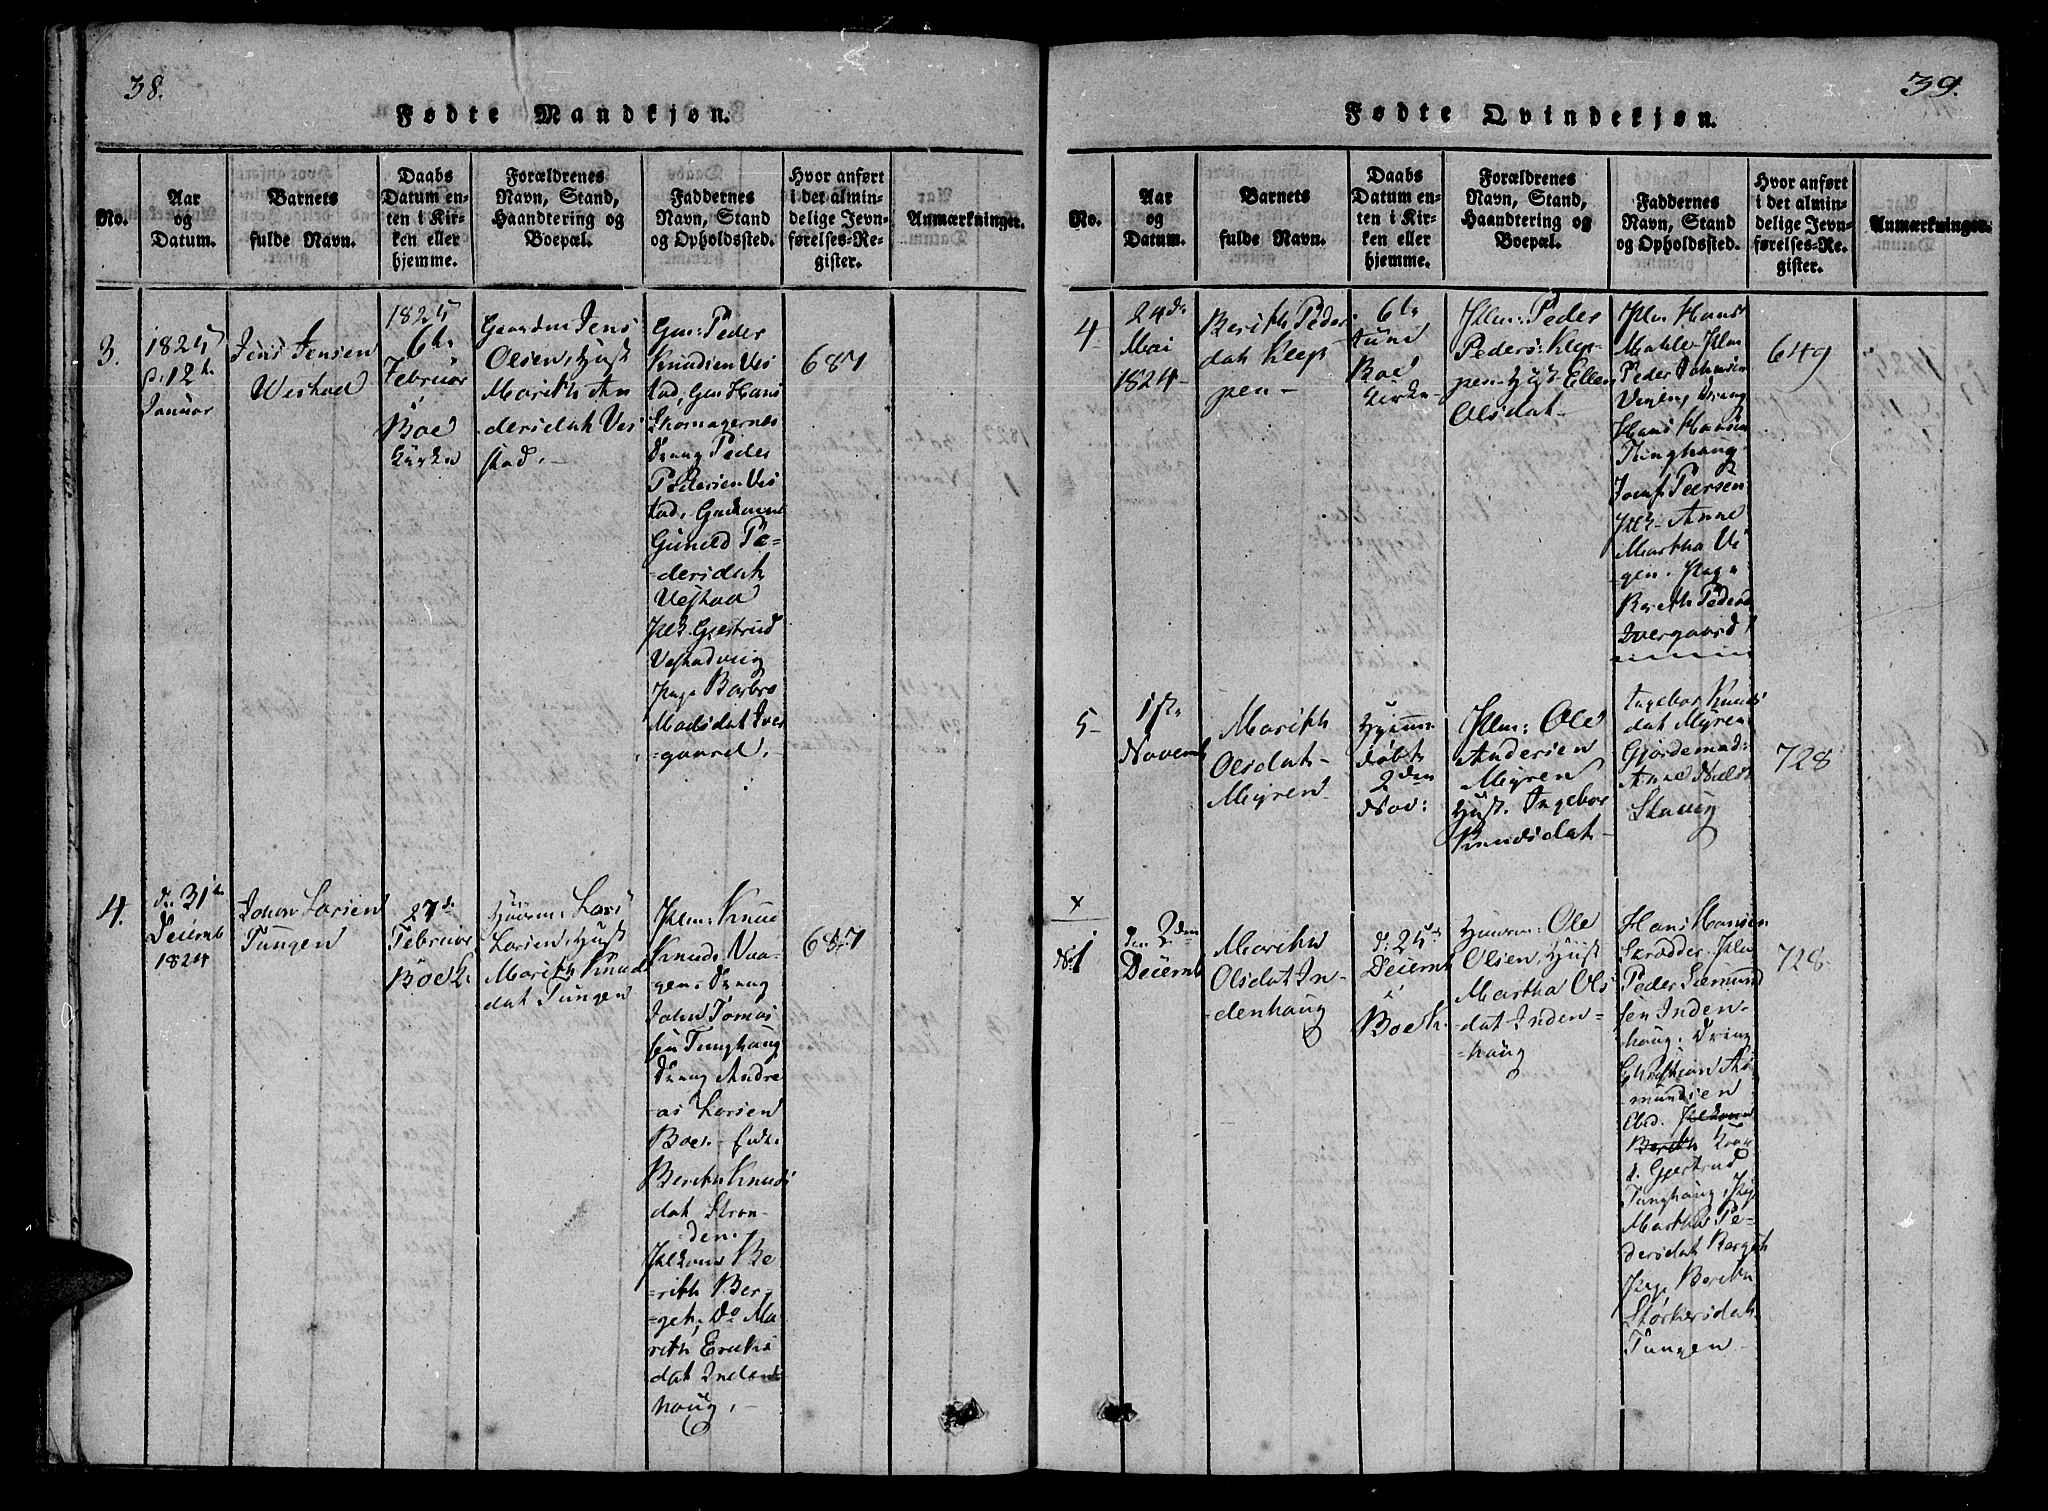 38.
Fødte Mandkjøn.
No.
Aar
og
Datum.
Barnets
fulde Navn.
Daabs
Datum en-
ten i Kir-
ken eller
hjemme.
Forældrenes
Navn, Stand,
Haandtering og
Boepæl.
Faddernes
Navn, Stand
og Opholdssted.
Hvor anført
i det almin-
delige Jevn-
førelses-Re-
gister.
Anmærkninger.
3.
1825
d: 12te
Januar
Jens Jensen
Westad
1825
6te
Februar
Boe
Kirke
Gaardm Jens
Olsen, Hust
Marith An
dersdat Ves
stad.
Gm: Peder
Knudsen Ves
tad, Gm Hans
Skomagernes
Dreng Peder
Pedersen Ves
tad, Gudmund
Gunild Pe-
dersdat
Vestad
Gjertrud
Vestadvig
Pige Barbro
Madsdat Iver
gaard.
687
4.
d: 31te
Decemb
1824
Johan Larsen
Tungen
27de
Februar
Boe K.
Huusm: Lars
Larsen, Hust
Marith Knuds
dat Tungen
Plm: Knud
Knuds: Vaa-
gen: Dreng
John Tomas
sen Tunghaug
Dreng Andre
as Larsen
Boe. Enke
Berethe Knuds
dat Stran-
den.
Be
rith Ber-
get, Do Ma
rith Eriks
dat Inden
haug.
687
39.
Fødte Qvindekjøn.
No.
Aar
og
Datum.
Barnets
fulde Navn.
Daabs
Datum en-
ten i Kir-
ken eller
hjemme.
Forældrenes
Navn, Stand,
Haandtering og
Boepæl.
Faddernes
Navn, Stand
og Opholdssted.
Hvor anført
i det almin-
delige Jevn-
førelses-Re-
gister.
Anmærkninger.
4
24de
Mai
1824
Berith Peders
dat Klep
pen
6te
Juni
Boe
Kirke
Plm: Peder
Peders: Klep-
pen Hust Ellen
Olsdat
Plm Hans
Male Plm
Peder Johansen
Vegen, Dreng
Hans Hansen
Tunghaug
Josef Peersen
Anne
Martha Ve
gen. Pige
Bereth Peders
Ivergaard
649
5
1ste
Novemb
Marith
Olsdat
Myren
Hjemme
døbt
2den
Nov:
Plm: Ole
Andersen
Myren
Hust. Ingebor
Knudsdat
Ingebor Knuds
dat Myren
Gjordemod:
Anne Niels
Skaug
728
x
No 1
den 2den
Decemb
Marithe
Olsdat In-
denhaug
d: 25de
Decemb
i
Boe K.
Huusm: Ole
Olsen, Hust
Martha Ols
dat Inden-
haug
Hans Hansen
Skrødder Plm
Peder Sæmund
sen Inden-
haug. Dreng
Christian As
mundsen
Ibd.
Bereth Kone
Gjertrud
Tunghaug, Pig
Martha Pe-
dersdat Berget
Pige Berethe
Størkersdat
Tungen
728